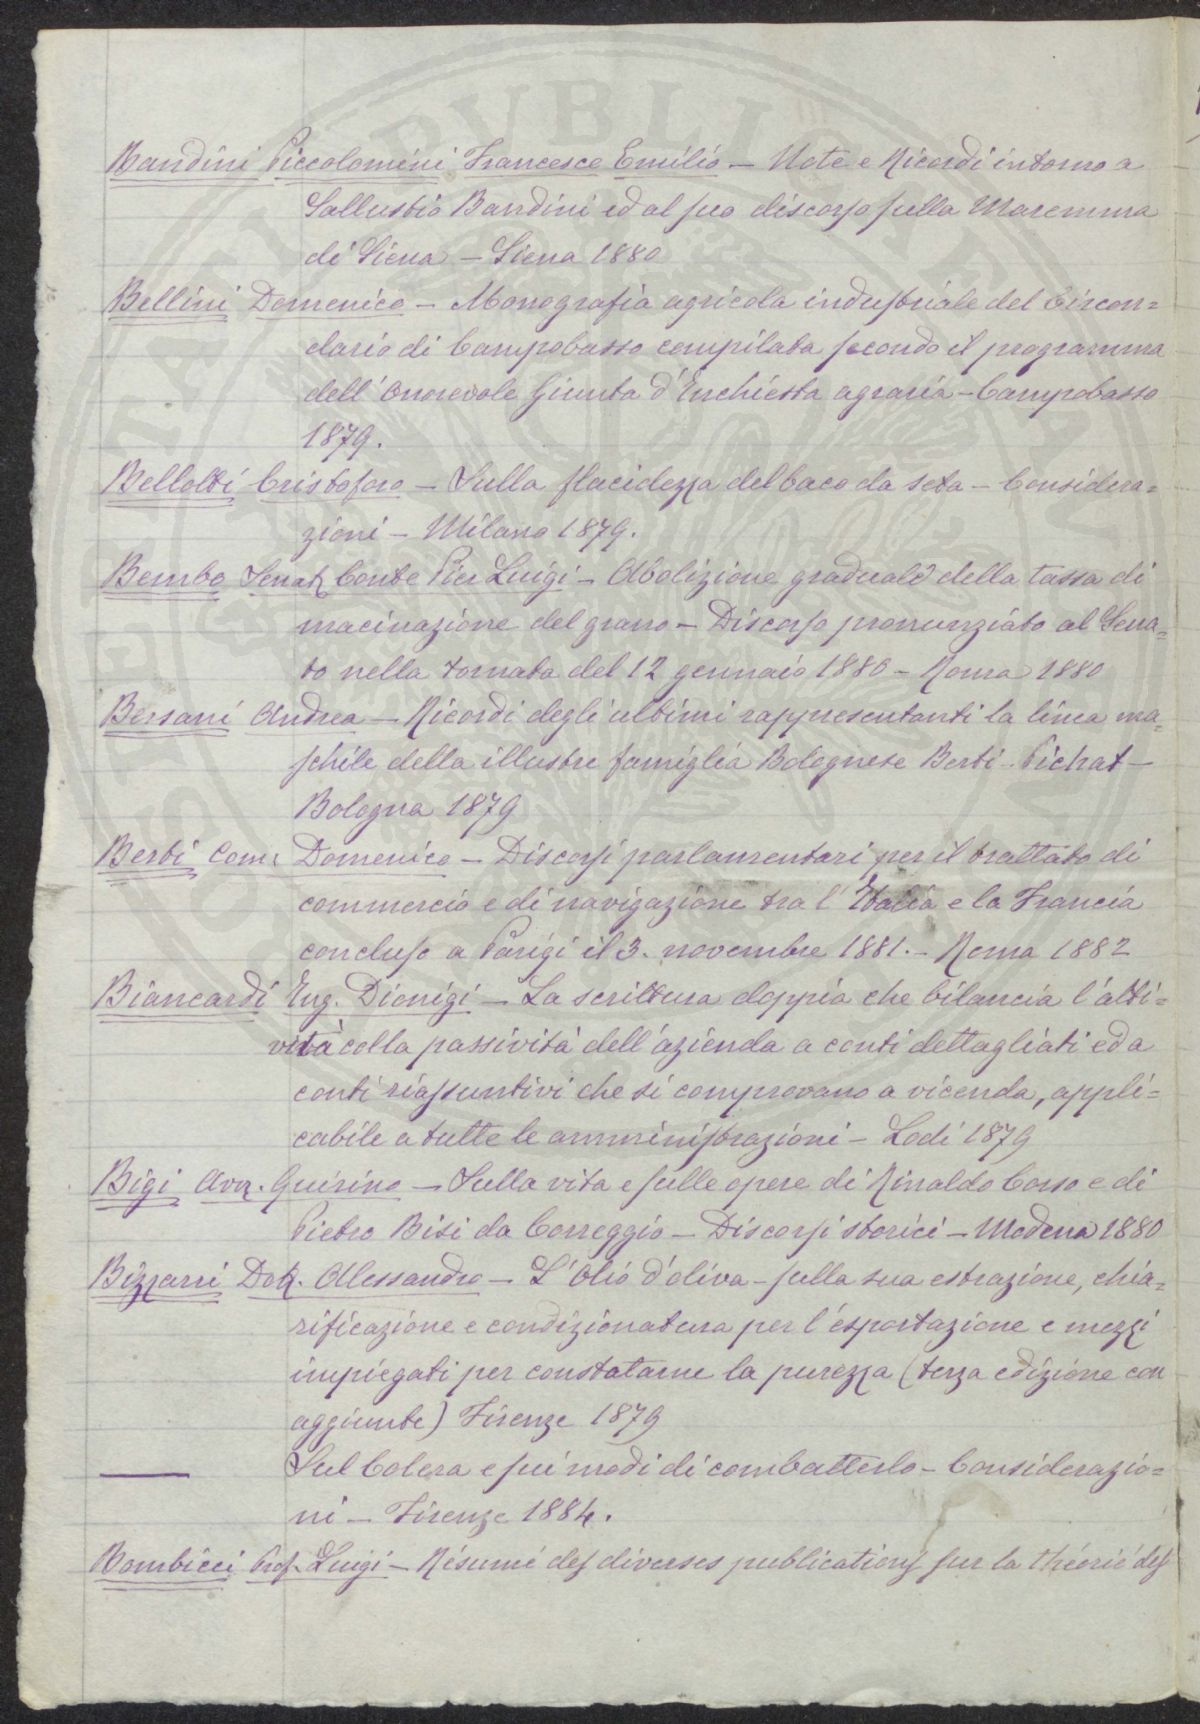 Bandini Piccolomini Francesco Emilio — Note e Ricordi intorno a
Sallustio Bandini ed al suo discorso sulla Maremma
di Siena — Siena 1880
Bellini Domenico — Monografia agricola industriale del Circon=
dario di Campobasso compilata secondo il programma
dell'Onorevole Giunta d'Inchiesta agraria — Campobasso
1879.
Bellotti Cristoforo — Sulla flacidezza del baco da seta — Considera=
zioni — Milano 1879.
Bembo Senat. Conte Pier Luigi — Abolizione graduale della tassa di
macinazione del grano — Discorso pronunziato al Sena=
to nella tornata del 12 gennaio 1880 — Roma 1880
Bersani Andrea — Ricordi degli ultimi rappresentanti la linea ma=
schile della illustre famiglia Bolognese Berti-Pichat —
Bologna 1879
Berti Com. Domenico — Discorsi parlamentari per il trattato di
commercio e di navigazione tra l'Italia e la Francia
concluso a Parigi il 3. novembre 1881. — Roma 1882
Biancardi Ing. Dionigi — La scrittura doppia che bilancia l'atti=
vità colla passività dell'azienda a conti dettagliati ed a
conti riassuntivi che si comprovano a vicenda, appli=
cabile a tutte le amministrazioni — Lodi 1879
Bigi Avv. Quirino — Sulla vita e sulle opere di Rinaldo Corso e di
Pietro Bisi da Correggio — Discorsi storici — Modena 1880
Bizzarri Dott. Alessandro — L'Olio d'oliva — sulla sua estrazione, chia=
rificazione e condizionatura per l'esportazione e mezzi
impiegati per constatarne la purezza (terza edizione con
aggiunte) Firenze 1879
——— Sul Colera e sui modi di combatterlo — Considerazio=
ni — Firenze 1884.
Bombicci Prof. Luigi — Résumé des diverses publications sur la théorie des